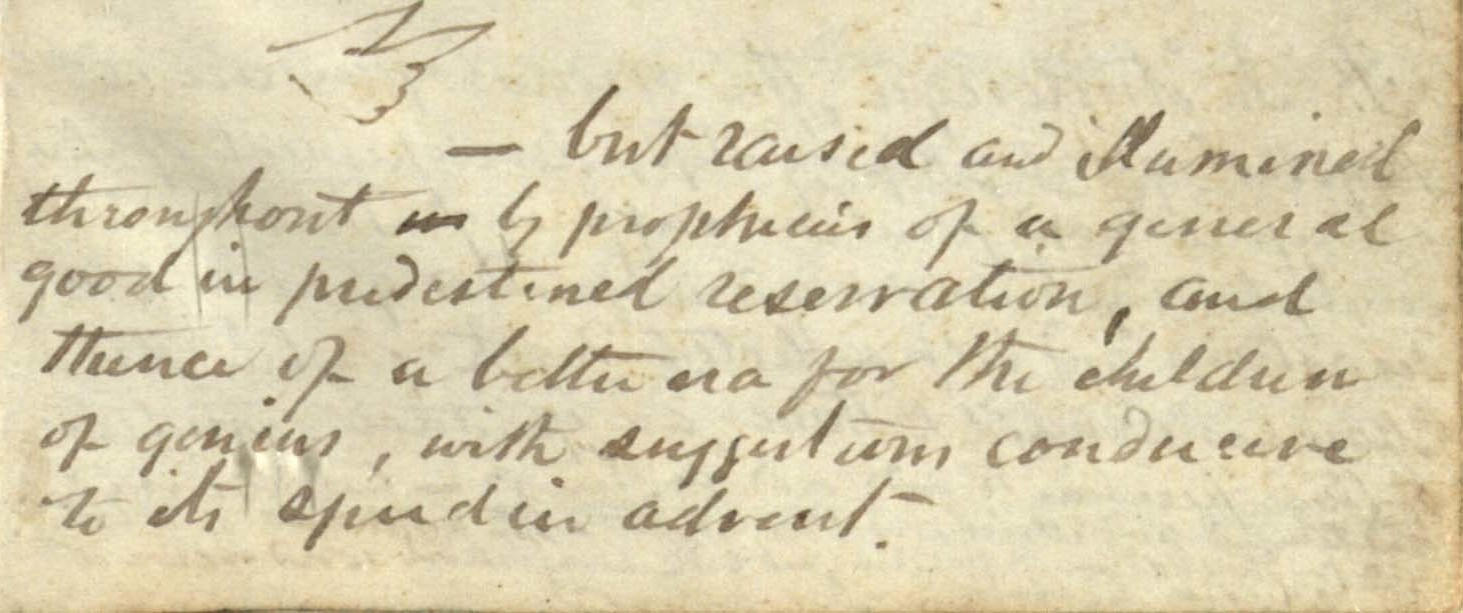 — but raised and illumined
throughout by prophecies of a general
good in predestined reservation, and
thence of a better era for the children
of genius, with suggestions conducive
to its speedier advent.